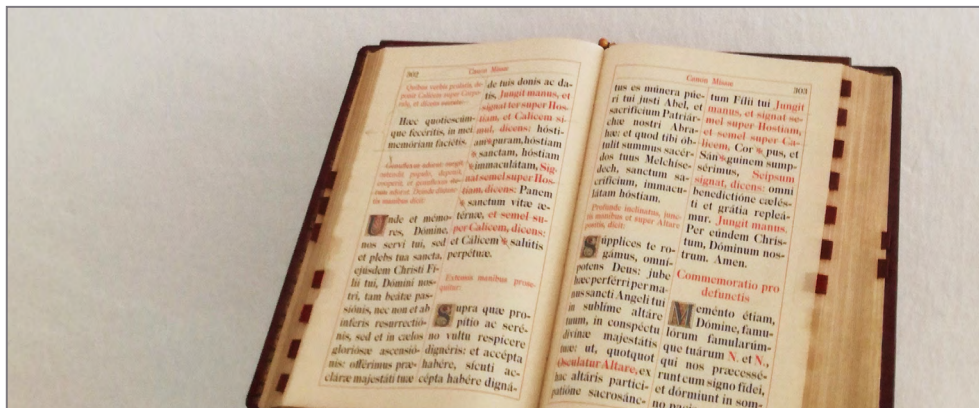 302
Canon Missæ
Quibus verbis prolatis, de-
ponit Calicem super Corpo-
rale, et dicens secrete:
Hæc quotiescúm-
que fecéritis, in mei
memóriam faciétis.
Genuflexus adorat: surgit,
osténdit populo, deponit,
cooperit, et genuflexus ite-
rum adorat. Deinde disiunc-
tis manibus dicit:
Unde et mémo-
res, Dómine,
nos servi tui, sed
et plebs tua sancta,
ejúsdem Christi Fí-
lii tui, Dómini nos-
tri, tam beátæ pas-
siónis, nec non et ab
ínferis resurrectió-
nis, sed et in cælos
gloriósæ ascensió-
nis: offérimus præ-
cláræ majestáti tuæ
de tuis donis ac da-
tis, Jungit manus, et
signat ter super Hos-
tiam, et Calicem si-
mul, dicens: hósti-
am ✠ puram, hóstiam
✠ sanctam, hóstiam
✠ immaculátam, Sig-
nat semel super Hos-
tiam, dicens: Panem
✠ sanctum vitæ æ-
térnæ, et semel su-
per Calicem, dicens:
et Cálicem ✠ salútis
perpétuæ.
Extensis manibus prose-
quitur:
Supra quæ pro-
pítio ac seré-
no vultu respícere
dignéris: et accépta
habére, sícuti ac-
cépta habére digná-
Canon Missæ
303
tus es múnera púe-
ri tui justi Abel, et
sacrifícium Patriár-
chæ nostri Abra-
hæ: et quod tibi ób-
tulit summus sacér-
dos tuus Melchíse-
dech, sanctum sa-
crifícium, immacu-
látam hóstiam.
Profunde inclinatus, junc-
tis manibus et super Altare
positis, dicit:
Súpplices te ro-
gámus, omní-
potens Deus: jube
hæc perférri per ma-
nus sancti Angeli tui
in sublíme altáre
tuum, in conspéctu
divínæ majestátis
tuæ: ut, quotquot
Osculatur Altare, ex
hac altáris partici-
patióne sacrosánc-
tum Fílii tui Jungit
manus, et signat se-
mel super Hostiam,
et semel super Ca-
licem, Cor ✠ pus, et
Sán ✠ guinem sump-
sérimus, Seipsum
signat, dicens: omni
benedictióne cælés-
ti et grátia repleá-
mur. Jungit manus.
Per eúndem Chris-
tum, Dóminum nos-
trum. Amen.
Commemoratio pro
defunctis
Meménto étiam,
Dómine, famu-
lórum famularúm-
que tuárum N. et N.,
qui nos præcessé-
runt cum signo fídei,
et dórmiunt in som-
no pacis